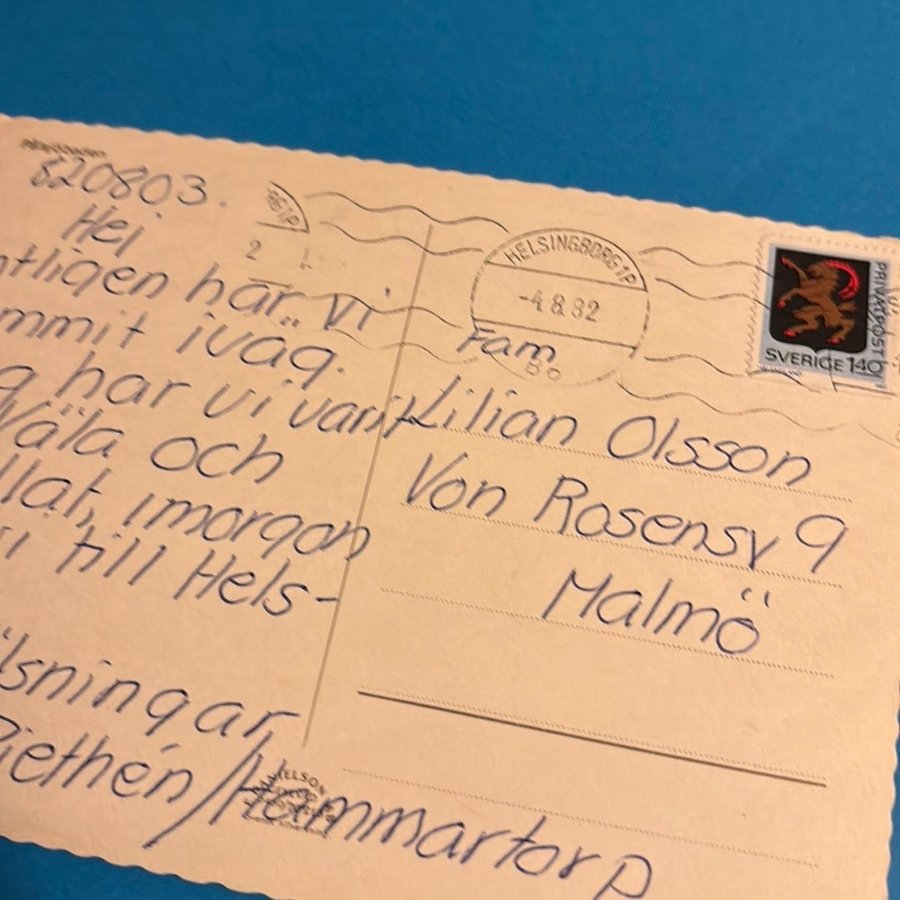 820803.
Hej
ntligen har vi
mmit iväg.
g har vi varit
Väla och
llat, imorgon
vi till Hels-
lsningar
Piethén/Hammartorp
HELSINGBORG 1P
-4.8.82
PRIVATPOST
SVERIGE 140
Fam
Lilian Olsson
Von Rosensv 9
Malmö